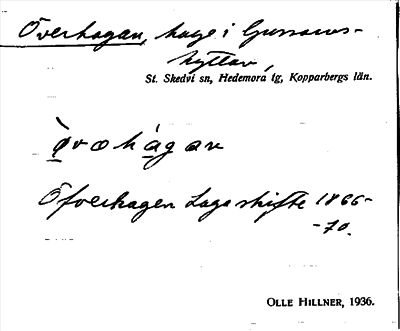 Överhagen, hage i Gussarvs-
hyttan,
St. Skedvi sn, Hedemora tg, Kopparbergs län.
Öfverhagen Laga skifte 1866-
-70.
OLLE HILLNER, 1936.